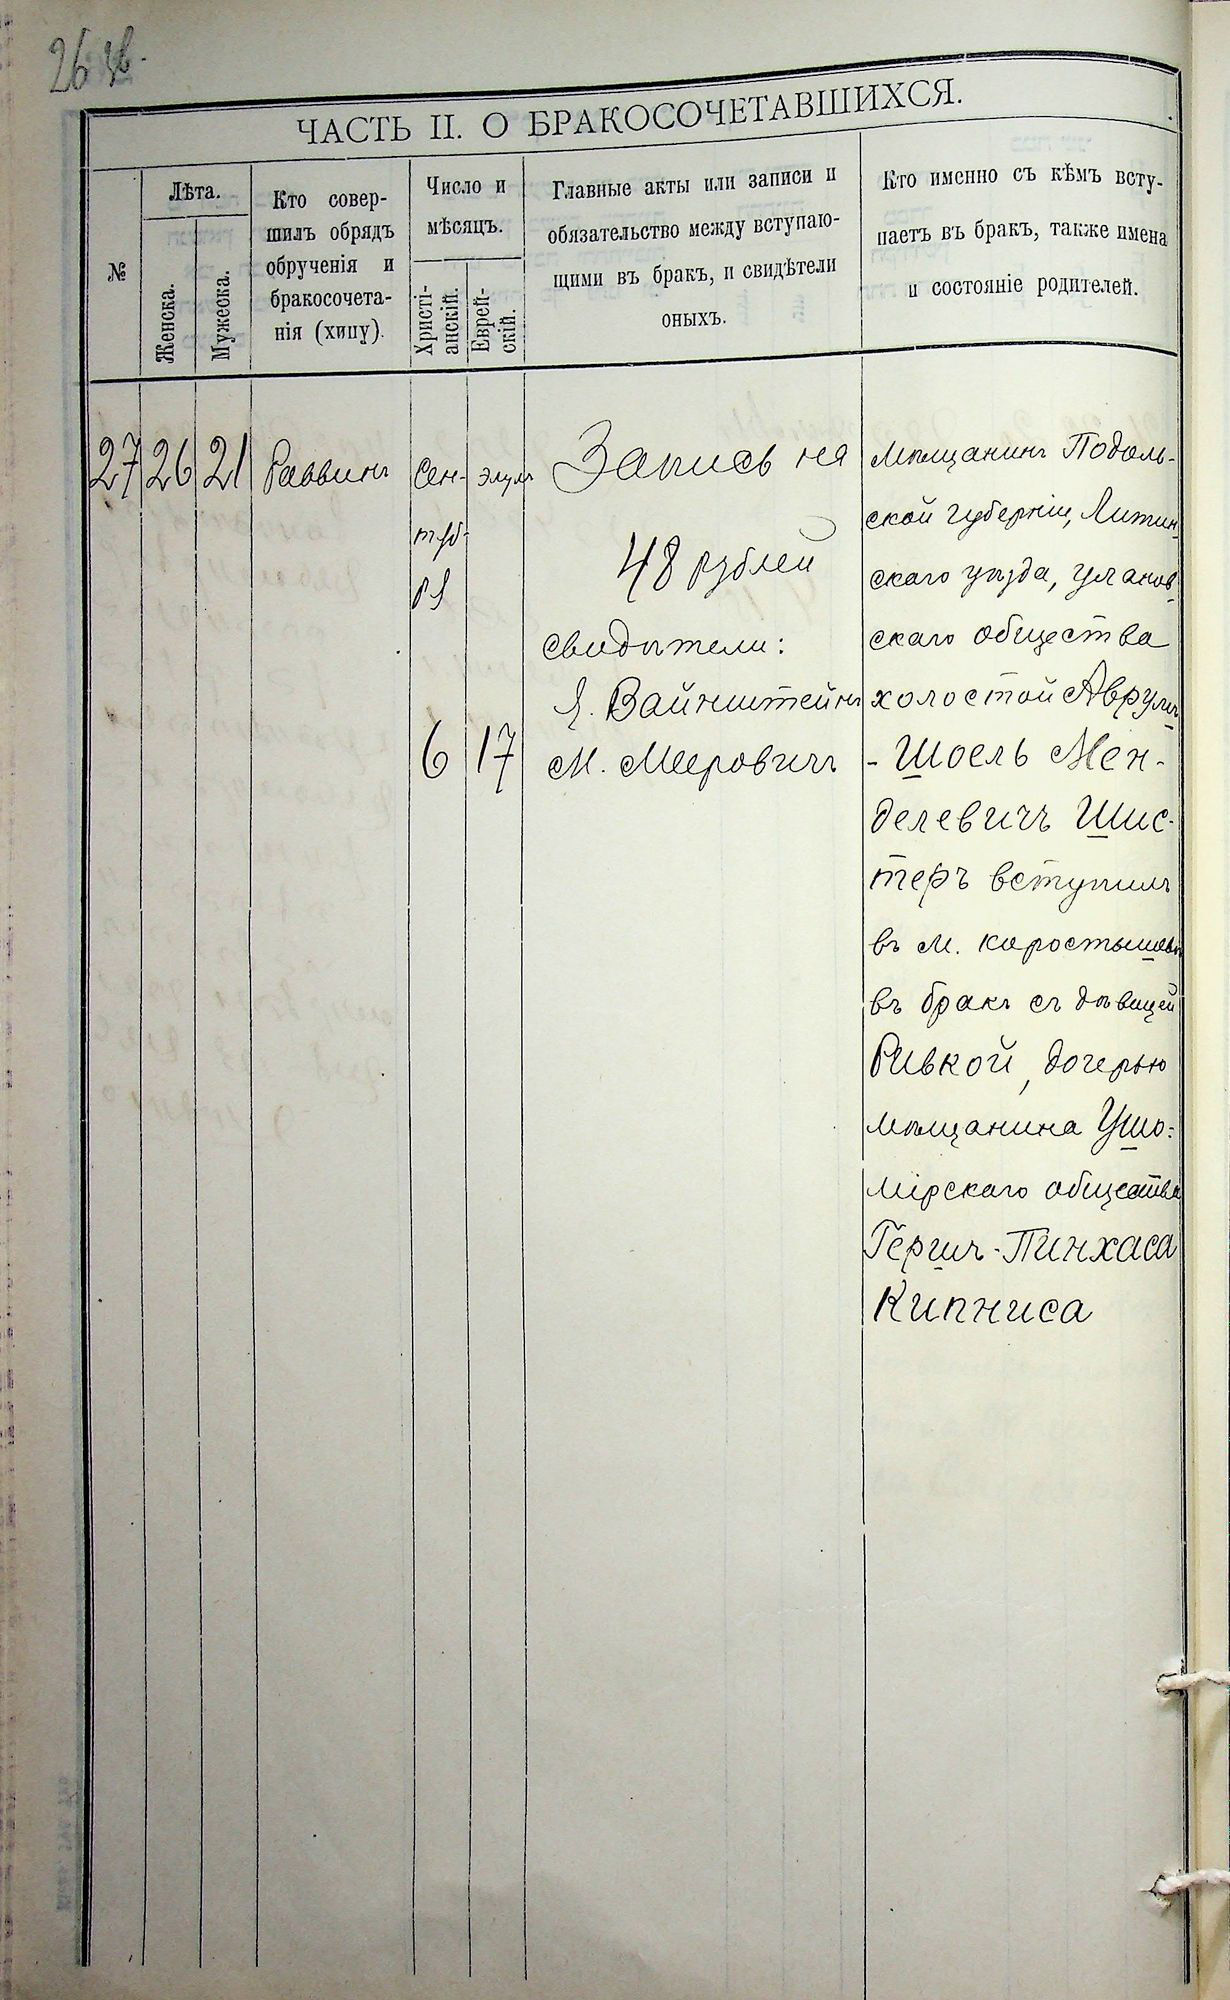 26 зв.
ЧАСТЬ II. О БРАКОСОЧЕТАВШИХСЯ.
№
Лѣта.
Женска.
Мужеска.
Кто совер-
шилъ обрядъ
обрученія и
бракосочета-
нія (хипу).
Число и
мѣсяцъ.
Христі-
анскій.
Еврей-
скій.
Главные акты или записи и
обязательство между вступаю-
щими въ бракъ, и свидѣтели
оныхъ.
Кто именно съ кѣмъ всту-
паетъ въ бракъ, также имена
и состояніе родителей.
27
26
21
Раввинъ
Сен-
тяб-
ря
6
Элулъ
17
Запись на
48 рублей
свидѣтели:
Я. Вайнштейнъ
М. Мееровичъ
Мѣщанинъ Подоль-
ской губерніи, Литин-
скаго уѣзда, Уланов-
скаго общества
холостой Аврумъ
-Шоель Мен-
делевичъ Шис-
теръ вступилъ
въ м. Коростышевѣ
въ бракъ съ дѣвицей
Ривкой, дочерью
мѣщанина Ушо-
мірскаго общества
Гершъ-Пинхаса
Кипниса